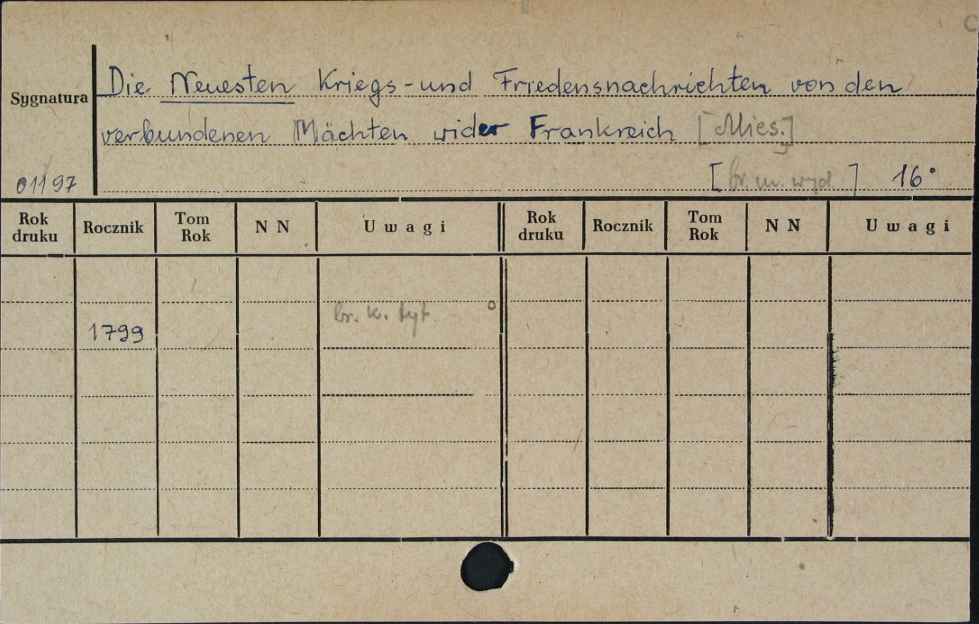 Die Neuesten Kriegs-und Friedensnachrichten von den
Sygnatura
verbundenen Mächten wider Frankreich [Mies.]
01197 [br. m. wyd.] 16°
Rok druku Rocznik Tom Rok N N Uwagi Rok druku Rocznik Tom Rok N N Uwagi
1799 br. k. tyt.